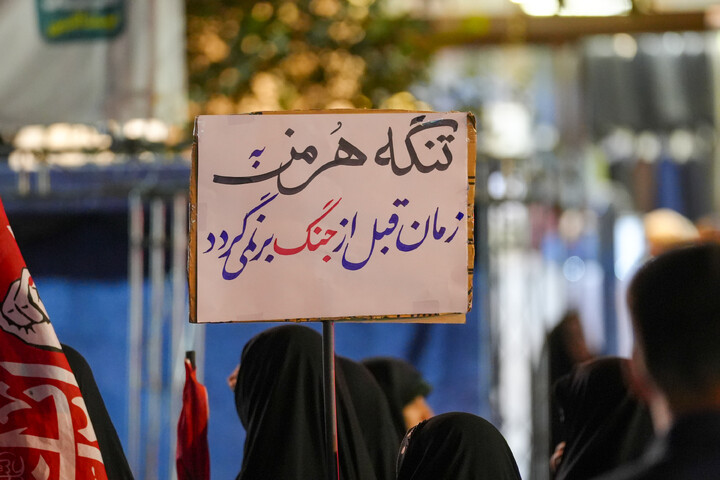 تنگه هرمز به
زمان قبل از جنگ برنمی‌گردد